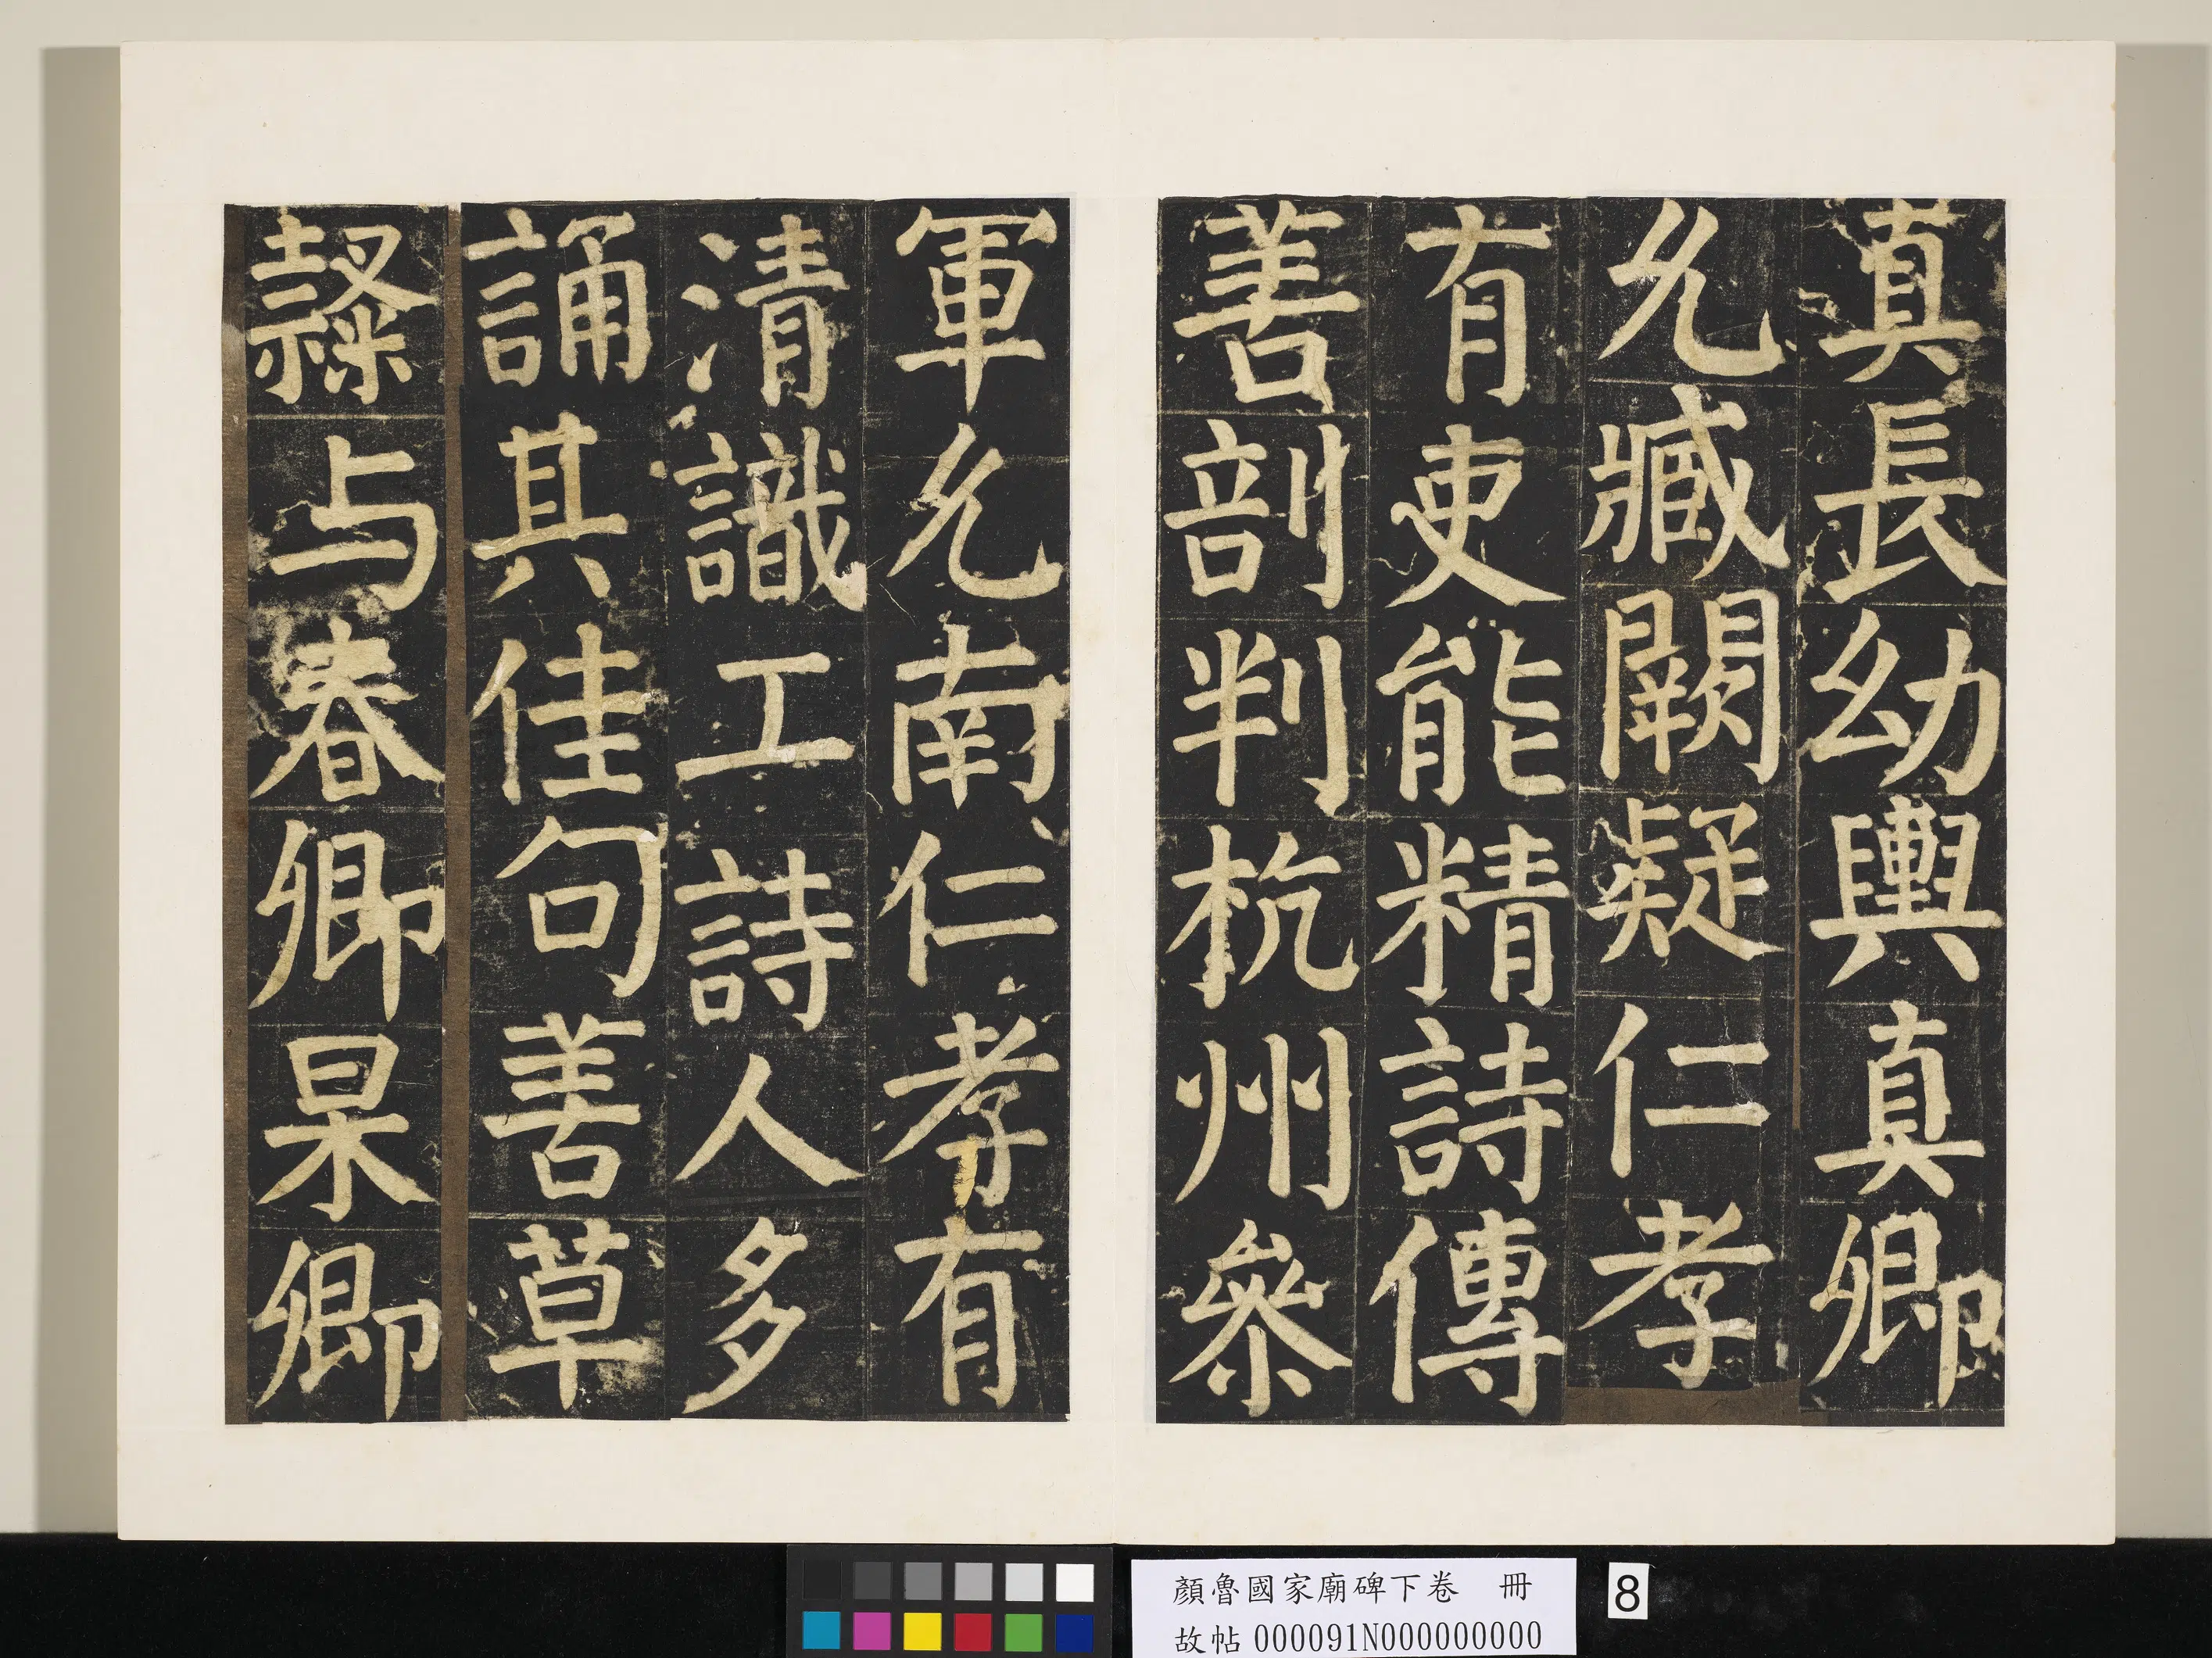 真長幼輿真卿
允臧闕疑仁孝
有吏能精詩傳
善剖判杭州參
軍允南仁孝有
清識工詩人多
誦其佳句善草
隸与春卿杲卿
顏魯國家廟碑下卷　冊
故帖000091N000000000
8